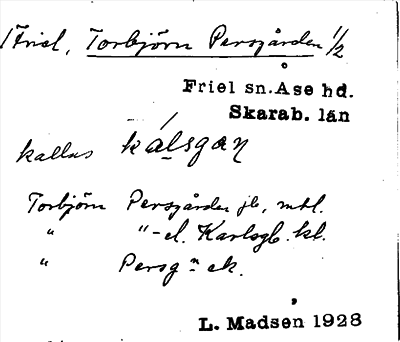 Friel, Torbjörn Persgården 1/2
Friel sn. Åse hd.
Skarab. län
kallas kálsgaɳ
Torbjörn Persgården jb, mtl.
" "-el. Karlsgb. kl.
" Persg n ek.
L. Madsen 1928